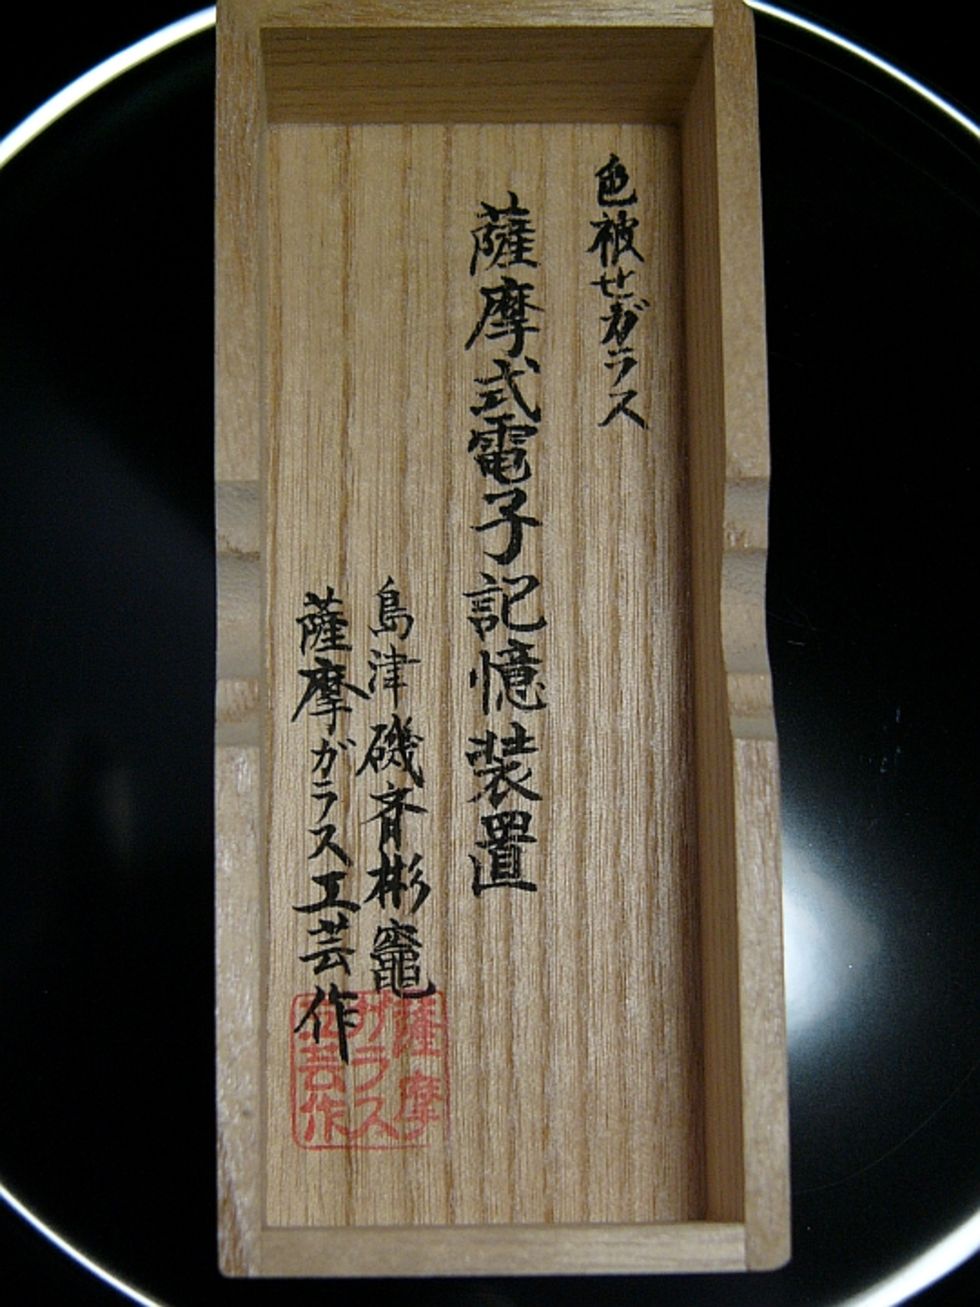 色被せガラス
薩摩式電子記憶装置
島津磯斉彬竈
薩摩ガラス工芸作
薩摩
ガラス
工芸作